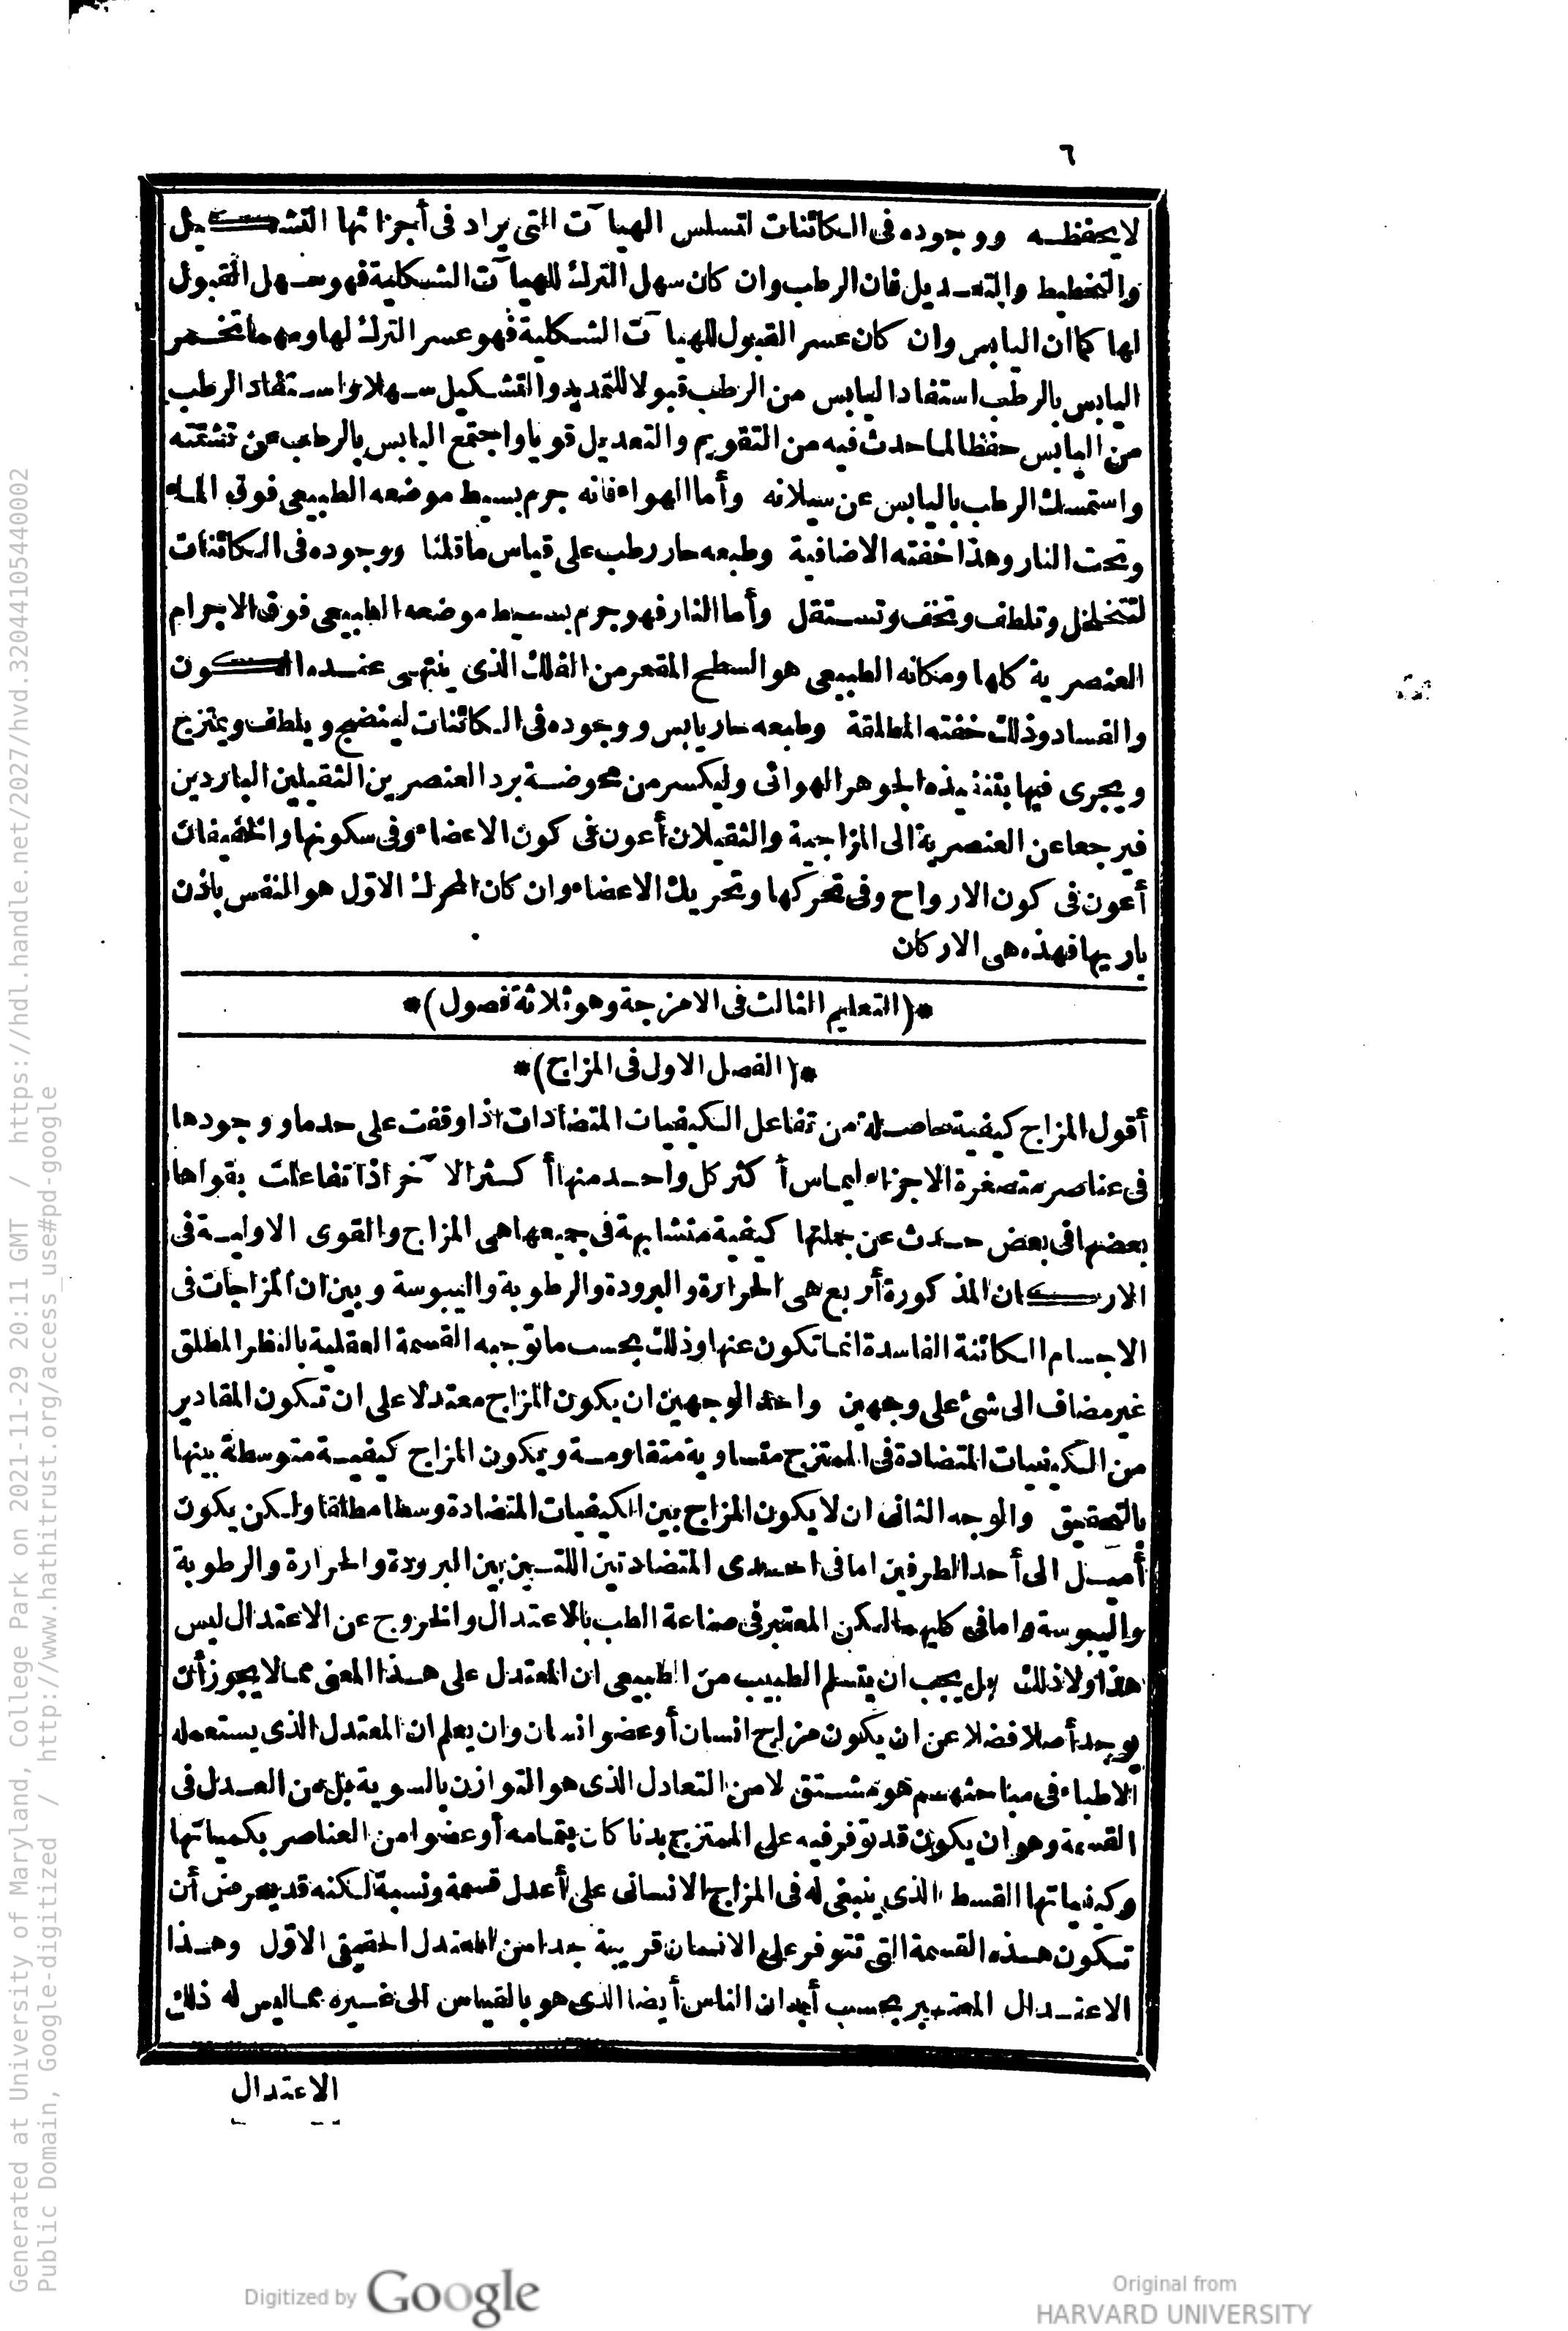 ٦
لا يحفظه ووجوده فى الكائنات لتسلس الهيا ٓت التى يراد فى أجزائها التشكيل
والتخطيط والتعديل فان الرطب وان كان سهل الترك للهيا ٓت الشكلية فهو سهل القبول
لها كما ان اليابس وان كان عسر القبول للهيا ٓت الشكلية فهو عسر الترك لها ومهما تخمر
اليابس بالرطب استفاد اليابس من الرطب قبولا للتمديد والتشكيل سهلا واستفاد الرطب
من اليابس حفظا لما حدث فيه من التقويم والتعديل قويا واجتمع اليابس بالرطب عن تشتته
واستمسك الرطب باليابس عن سيلانه وأما الهواء فانه جرم بسيط موضعه الطبيعى فوق الماء
وتحت النار وهذا خفته الاضافية وطبعه حار رطب على قياس ما قلنا ووجوده فى الكائنات
لتتخلخل وتلطف وتخف وتستقل وأما النار فهو جرم بسيط موضعه الطبيعى فوق الاجرام
العنصرية كلها ومكانه الطبيعى هو السطح المقعر من الفلك الذى ينتهى عنده الكون
والفساد وذلك خفته المطلقة وطبعه حار يابس ووجوده فى الكائنات لينضج ويلطف ويمتزج
ويجرى فيها بتنفيذه الجوهر الهوائى وليكسر من محوضة برد العنصرين الثقيلين الباردين
فيرجعا عن العنصرية الى المزاجية والثقيلان أعون فى كون الاعضاء وفى سكونها والخفيفان
أعون فى كون الارواح وفى تحركها وتحريك الاعضاء وان كان المحرك الاول هو النفس باذن
باريها فهذه هى الاركان
*(التعليم الثالث فى الامزجة وهو ثلاثة فصول)*
*(الفصل الاول فى المزاج)*
أقول المزاج كيفية حاصلة من تفاعل الكيفيات المتضادات اذا وقفت على حد ما ووجودها
فى عناصر متصغرة الاجزاء ليماس أكثر كل واحد منها أكثر الا ٓخر اذا تفاعلت بقواها
بعضها فى بعض حدث عن جملتها كيفية متشابهة فى جميعها هى المزاج والقوى الاولية فى
الاركان المذكورة أربع هى الحرارة والبرودة والرطوبة واليبوسة وبين ان المزاجات فى
الاجسام الكائنة الفاسدة انما تكون عنها وذلك بحسب ما توجبه القسمة العقلية بالنظر المطلق
غير مضاف الى شئ على وجهين واحد الوجهين ان يكون المزاج معتدلا على ان تكون المقادير
من الكيفيات المتضادة فى الممتزج متساوية متقاومة ويكون المزاج كيفية متوسطة بينها
بالتحقيق والوجه الثانى ان لا يكون المزاج بين الكيفيات المتضادة وسطا مطلقا ولكن يكون
أميل الى أحد الطرفين اما فى احدى المتضادتين اللتين بين البرودة والحرارة والرطوبة
واليبوسة واما فى كليهما لكن المعتبر فى صناعة الطب بالاعتدال والخروج عن الاعتدال ليس
هذا ولا ذلك بل يجب ان يتسلم الطبيب من الطبيعى ان المعتدل على هذا المعنى مما لا يجوز أن
يوجد أصلا فضلا عن ان يكون مزاج انسان أو عضو انسان وان يعلم ان المعتدل الذى يستعمله
الاطباء فى مباحثهم هو مشتق لا من التعادل الذى هو التوازن بالسوية بل من العدل فى
القسمة وهو ان يكون قد توفر فيه على الممتزج بدنا كان بتمامه أو عضوا من العناصر بكمياتها
وكيفياتها القسط الذى ينبغى له فى المزاج الانسانى على أعدل قسمة ونسبة لكنه قد يعرض أن
تكون هذه القسمة التى تتوفر على الانسان قريبة جدا من المعتدل الحقيقى الاول وهذا
الاعتدال المعتبر بحسب أبدان الناس أيضا الذى هو بالقياس الى غيره مما ليس له ذلك
الاعتدال
Generated at University of Maryland, College Park on 2021-11-29 20:11 GMT / https://hdl.handle.net/2027/hvd.32044105440002
Public Domain, Google-digitized / http://www.hathitrust.org/access_use#pd-google
Digitized by Google
Original from
HARVARD UNIVERSITY